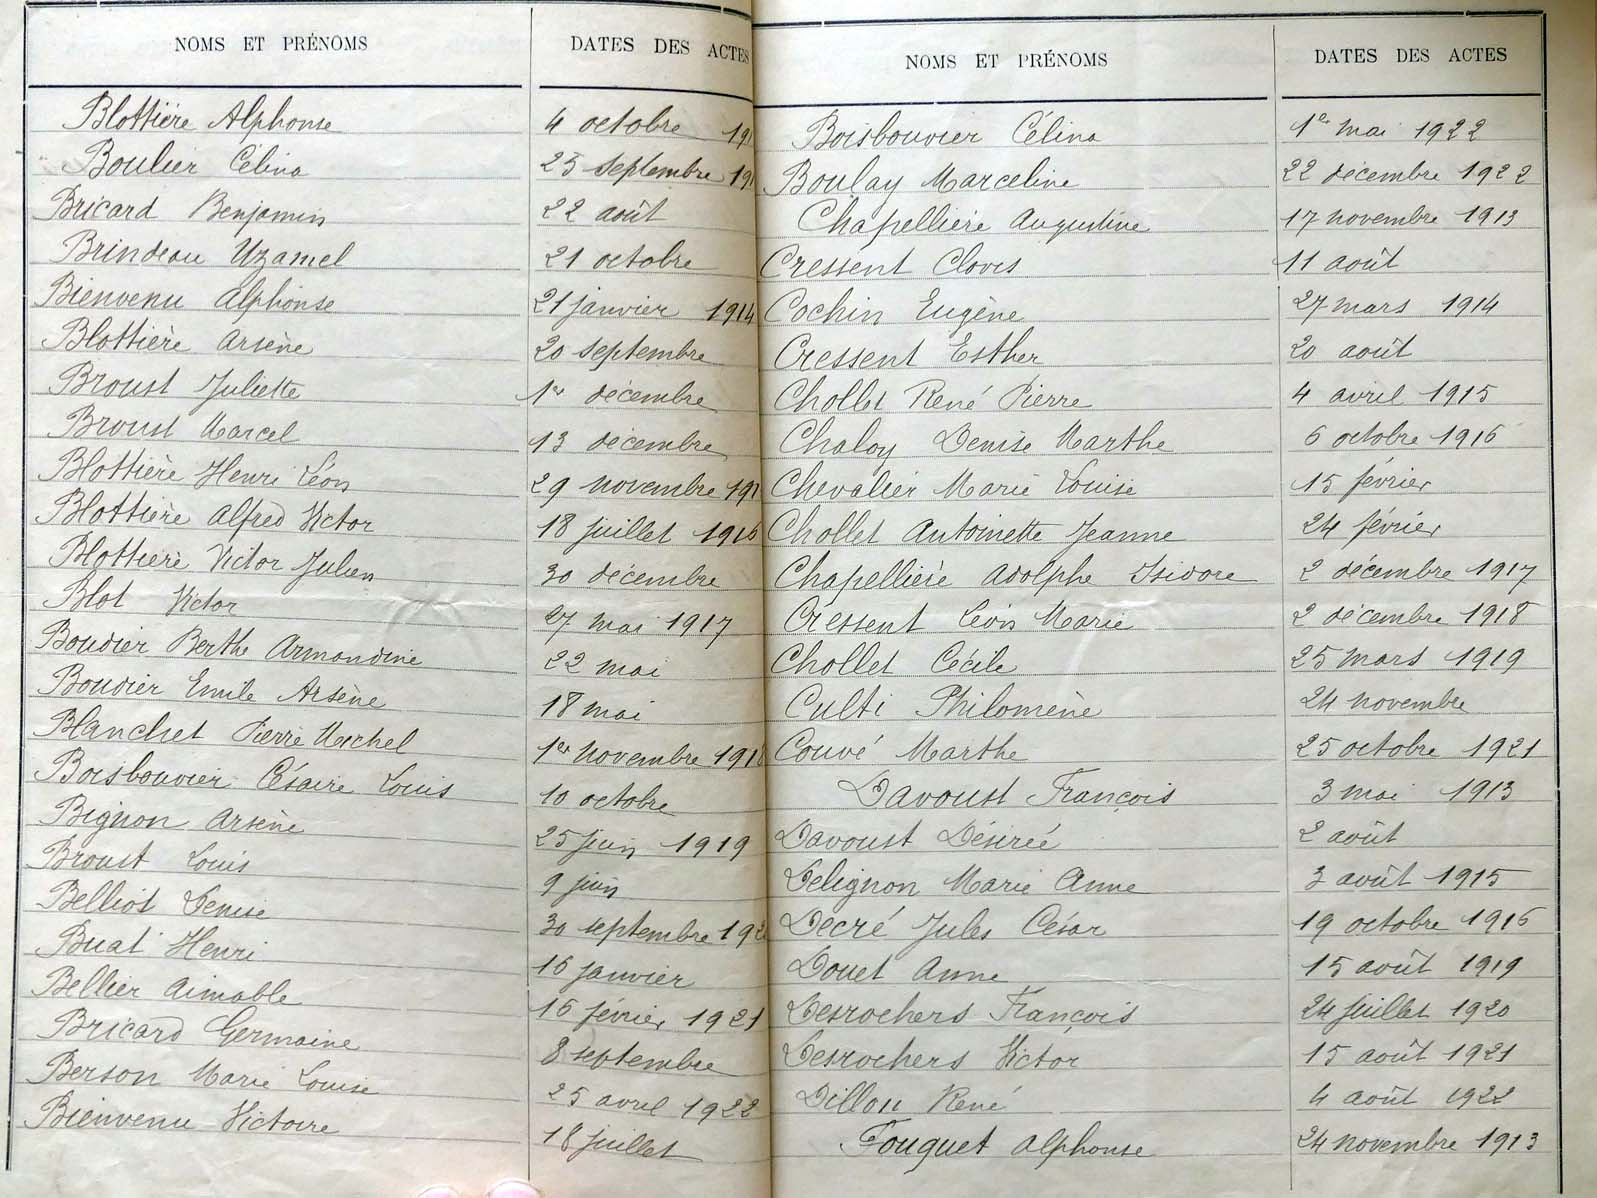 NOMS ET PRÉNOMS DATES DES ACTES
Blottière Alphonse 4 octobre 191
Boulier Célina 25 septembre 191
Bricard Benjamin 22 août
Brindeau Uzamel 21 octobre
Bienvenu Alphonse 21 janvier 1914
Blottière Arsène 20 septembre
Broust Juliette 1er décembre
Broust Marcel 13 décembre
Blottière Henri Léon 29 novembre 191
Blottière Alfred Victor 18 juillet 1916
Blottière Victor Julien 30 décembre
Blot Victor 27 mai 1917
Boudier Berthe Armandine 22 mai
Boudier Emile Arsène 18 mai
Blanchet Pierre Michel 1er novembre 1918
Boisbouvier Césaire Louis 10 octobre
Bignon Arsène 25 juin 1919
Broust Louis 9 juin
Belliot Denise 30 septembre 192
Buat Henri 16 janvier
Bellier Aimable 16 février 1921
Bricard Germaine 8 septembre
Berson Marie Louise 25 avril 1922
Bienvenu Victoire 18 juillet
NOMS ET PRÉNOMS DATES DES ACTES
Boisbouvier Célina 1er mai 1922
Boulay Marceline 22 décembre 1922
Chapellière Augustine 17 novembre 1913
Cressent Clovis 11 août
Cochin Eugène 27 mars 1914
Cressent Esther 20 août
Chollet René Pierre 4 avril 1915
Chaloy Denise Marthe 6 octobre 1916
Chevalier Marie Louise 15 février
Chollet Antoinette Jeanne 24 février
Chapellière Adolphe Isidore 2 décembre 1917
Cressent Léon Marie 2 décembre 1918
Chollet Cécile 25 mars 1919
Culti Philomène 24 novembre
Couvé Marthe 25 octobre 1921
Davoust François 3 mai 1913
Davoust Désireé 2 août
Delignon Marie Anne 3 août 1915
Decré Jules César 19 octobre 1916
Douet Anne 15 août 1919
Desrochers François 24 juillet 1920
Desrochers Victor 15 août 1921
Dillon René 4 août 1922
Fouquet Alphonse 24 novembre 1913